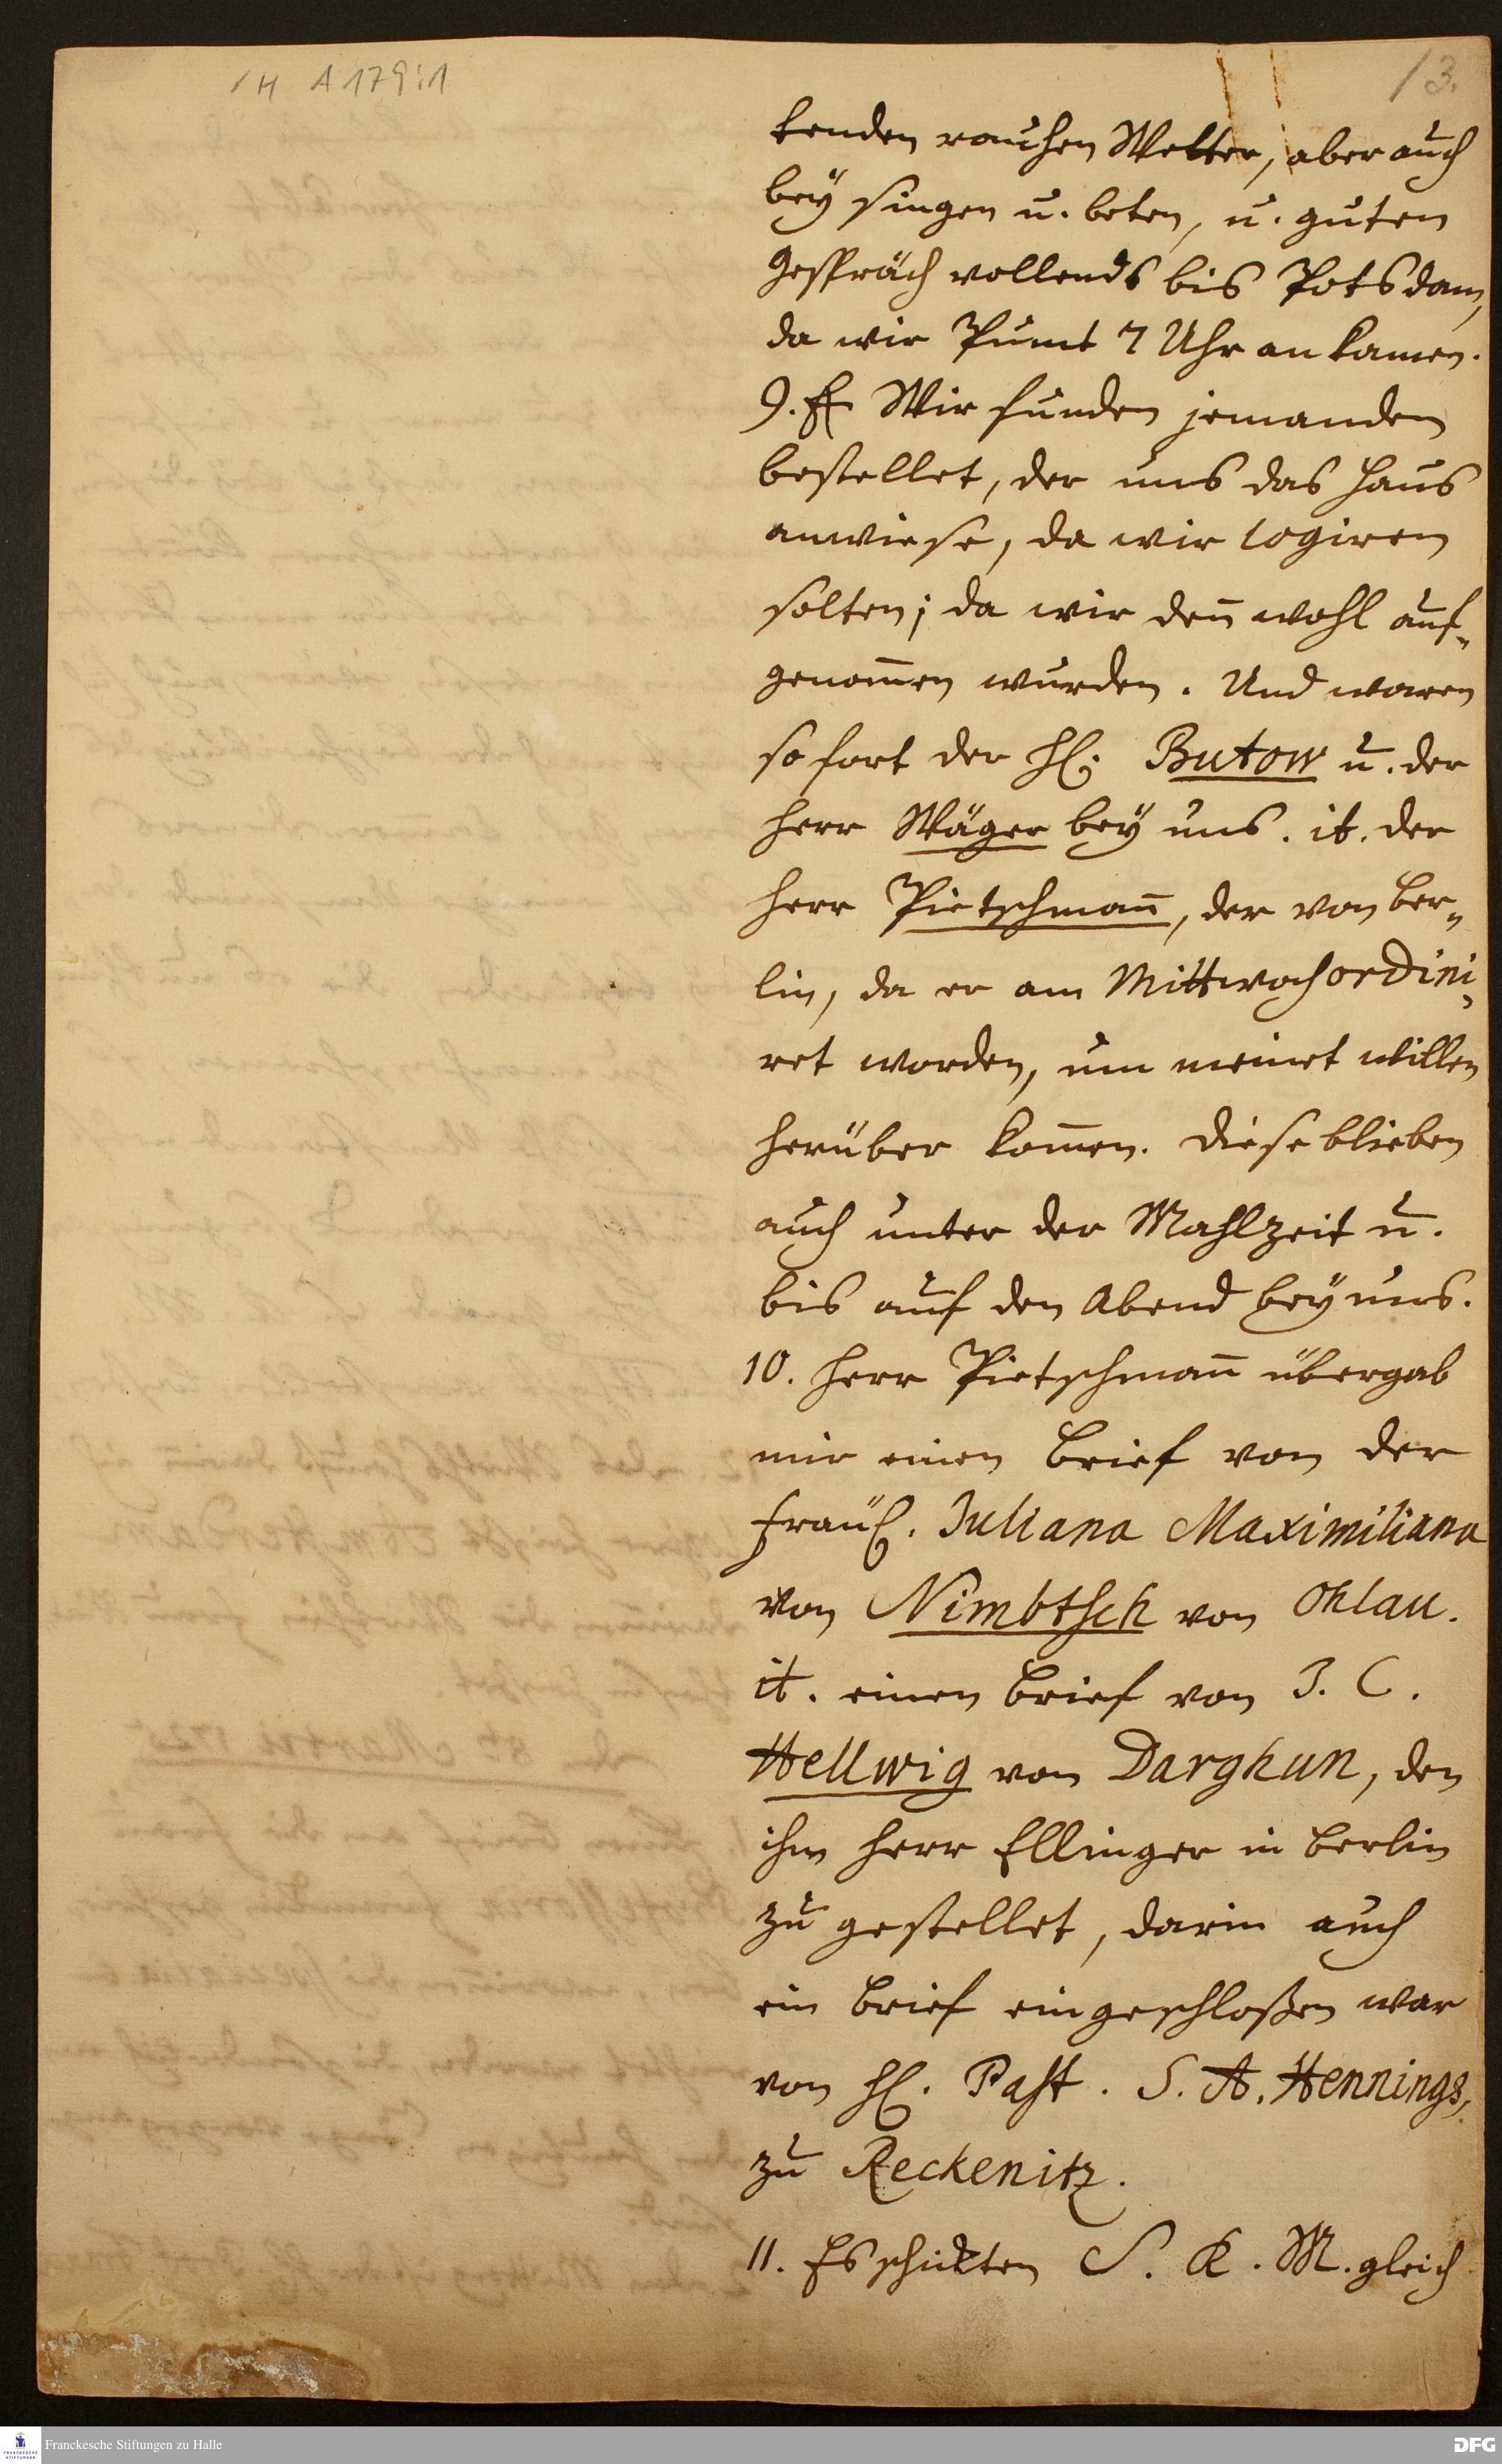 /H A 179:1
13.
tenden rauhen Wetter, aber auch
bey singen u. beten, u. guten
Gespräch vollends bis Potsdam,
da wir Punct 7 Uhr an kamen.
9. Wir funden jemanden
bestellet, der uns das Haus
anwiese, da wir logiren
solten; da wir deñ wohl auf-
genom̄en wurden. Und waren
so fort der H. Butow u. der
Herr Wäger bey uns. it. der
Herr Pietschman̄, der von Ber-
lin, da er am Mittwoch ordini-
ret worden, um meinet willen
herüber kom̄en. Diese blieben
auch unter der Mahlzeit u.
bis auf den Abend bey uns.
10. Herr Pietschman̄ übergab
mir einen Brief von der
Fräul. Juliana Maximiliana
von Nimbtsch von Ohlau.
it. einen Brief von J. C.
Hellwig von Darghun, den
ihm Herr Ellinger in Berlin
zu gestellet, darin auch
ein Brief eingeschloßen war
von H. Past. S. A. Hennings,
zu Reckenitz.
11. Es schickten S. K. M. gleich
Franckesche Stiftungen zu Halle
DFG